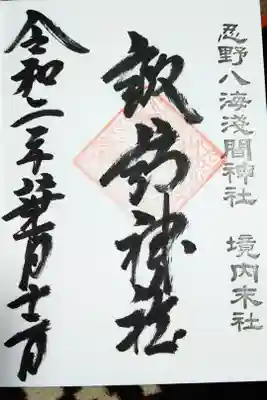 忍野八海淺間神社 境内末社
諏訪神社
令和二年葉月十一日